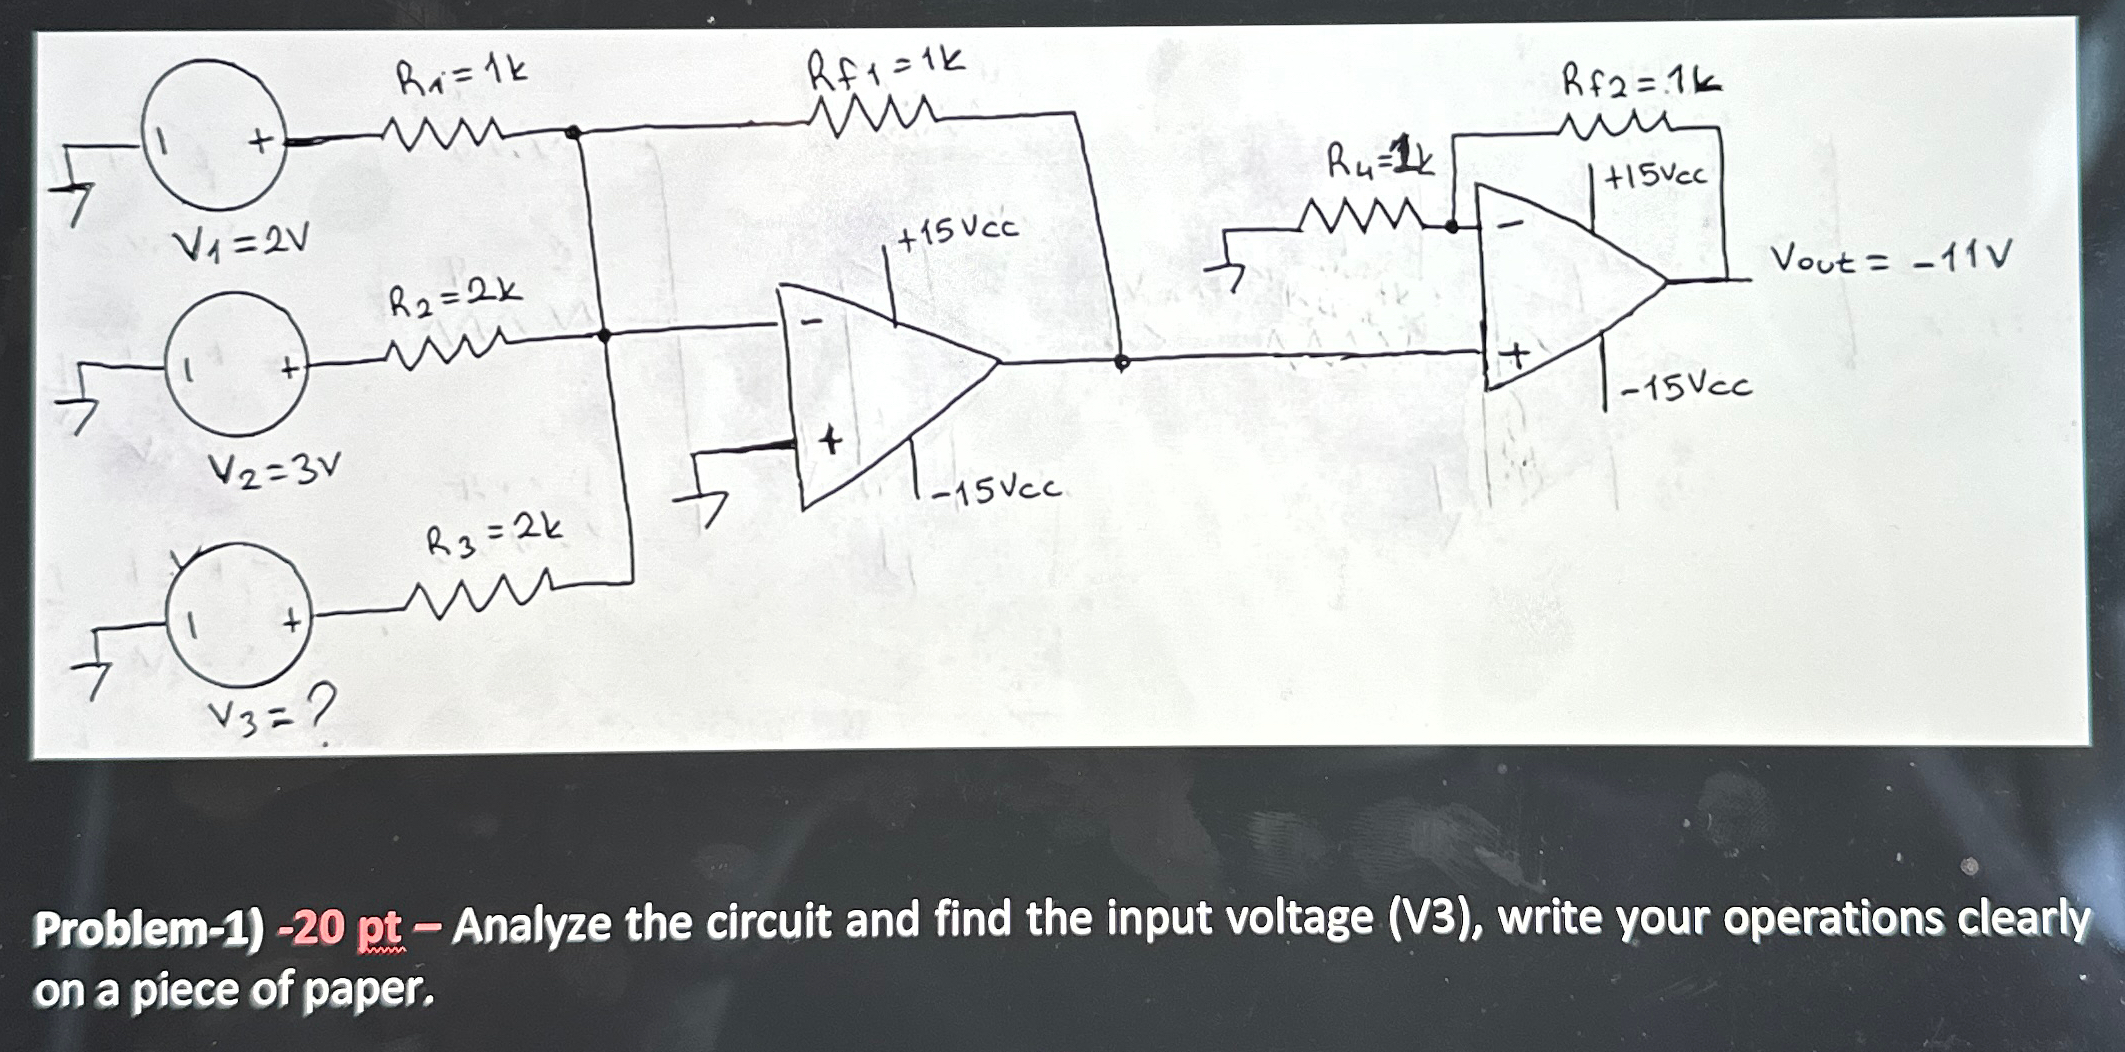 R1=1k
Rf1=1k
Rf2=1k
R4=1k
+15Vcc
- +
V1=2V
+15Vcc
-
Vout = -11V
R2=2k
-
+
-15Vcc
- +
+
V2=3V
-15Vcc
R3=2k
- +
V3=?
Problem-1) -20 pt – Analyze the circuit and find the input voltage (V3), write your operations clearly
on a piece of paper.